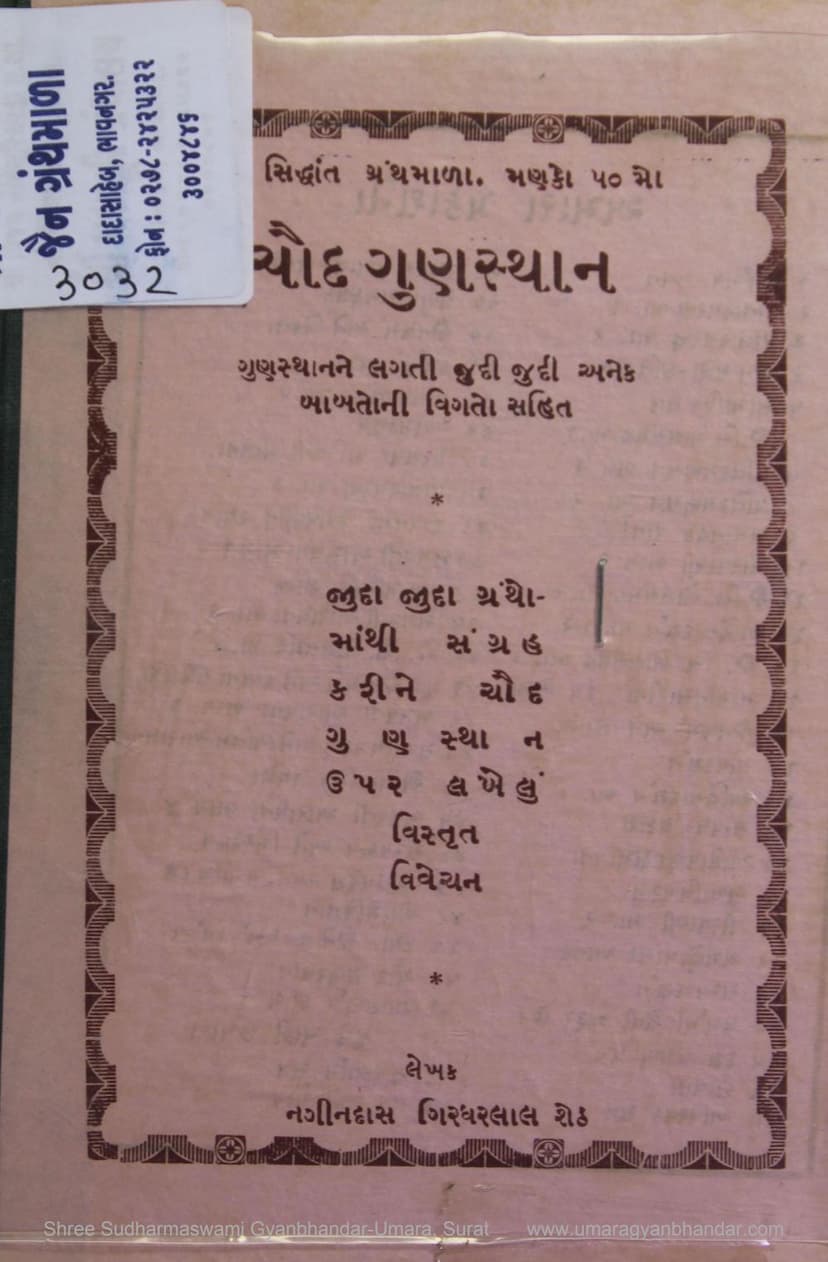 જૈન ગ્રંથમાળા
દાદાસાહેબ, ભાવનગર.
ફોન : ૦૨૭૮-૨૪૨૫૩૨૨
૩૦૦૪૮૪૬
3032
સિદ્ધાંત ગ્રંથમાળા. મણકો ૫૦ મો
ચૌદ ગુણસ્થાન
ગુણસ્થાનને લગતી જુદી જુદી અનેક
બાબતોની વિગતો સહિત
*
જુદા જુદા ગ્રંથો-
માંથી સંગ્રહ
કરીને ચૌદ
ગુણસ્થાન
ઉપર લખેલું
વિસ્તૃત
વિવેચન
*
લેખક
નગીનદાસ ગિરધરલાલ શેઠ
Shree Sudharmaswami Gyanbhandar-Umara, Surat www.umaragyanbhandar.com